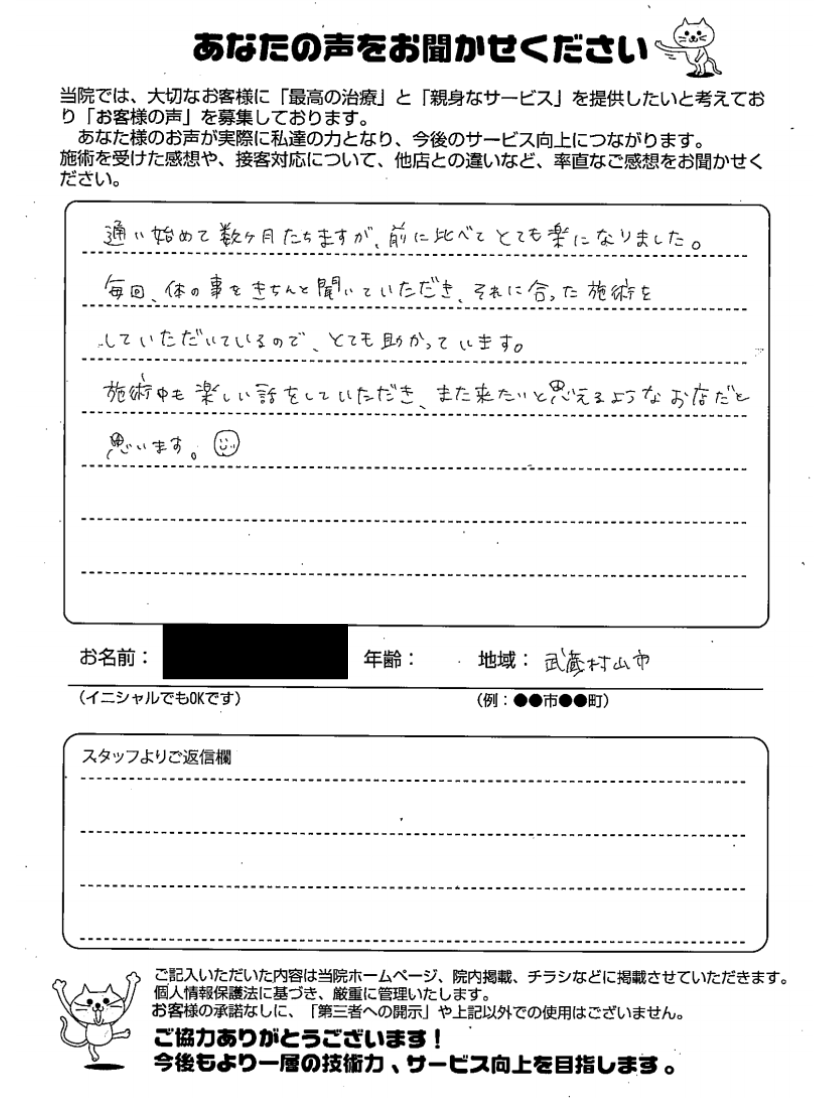 あなたの声をお聞かせください
当院では、大切なお客様に「最高の治療」と「親身なサービス」を提供したいと考えてお
り「お客様の声」を募集しております。
あなた様のお声が実際に私達の力となり、今後のサービス向上につながります。
施術を受けた感想や、接客対応について、他店との違いなど、率直なご感想をお聞かせく
ださい。
通い始めて数ヶ月たちますが、前に比べてとても楽になりました。
毎回、体の事をきちんと聞いていただき、それに合った施術を
していただいているので、とても助かっています。
施術中も楽しい話をしていただき、また来たいと思えるようなお店だと
思います。
お名前： 年齢： 地域：武蔵村山市
（イニシャルでもOKです） （例：●●市●●町）
スタッフよりご返信欄
ご記入いただいた内容は当院ホームページ、院内掲載、チラシなどに掲載させていただきます。
個人情報保護法に基づき、厳重に管理いたします。
お客様の承諾なしに、「第三者への開示」や上記以外での使用はございません。
ご協力ありがとうございます！
今後もより一層の技術力、サービス向上を目指します。